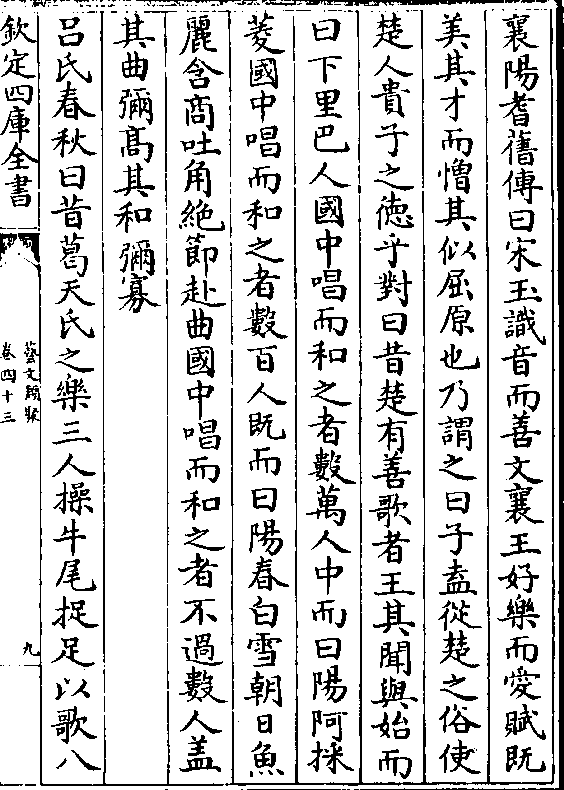 襄陽耆舊傳曰宋玉識音而善文襄王好樂而愛賦既
美其才而憎其似屈原也乃謂之曰子盍從楚之俗使
楚人貴子之徳乎對曰昔楚有善歌者王其聞與始而
曰下里巴人國中唱而和之者數萬人中而曰陽阿採
菱國中唱而和之者數百人既而曰陽春白雪朝日魚
麗含商吐角絶節赴曲國中唱而和之者不過數人盖
其曲彌髙其和彌寡
呂氏春秋曰昔葛天氏之樂三人操牛尾捉足以歌八
欽定四庫全書
藝文類聚
卷四十三
九